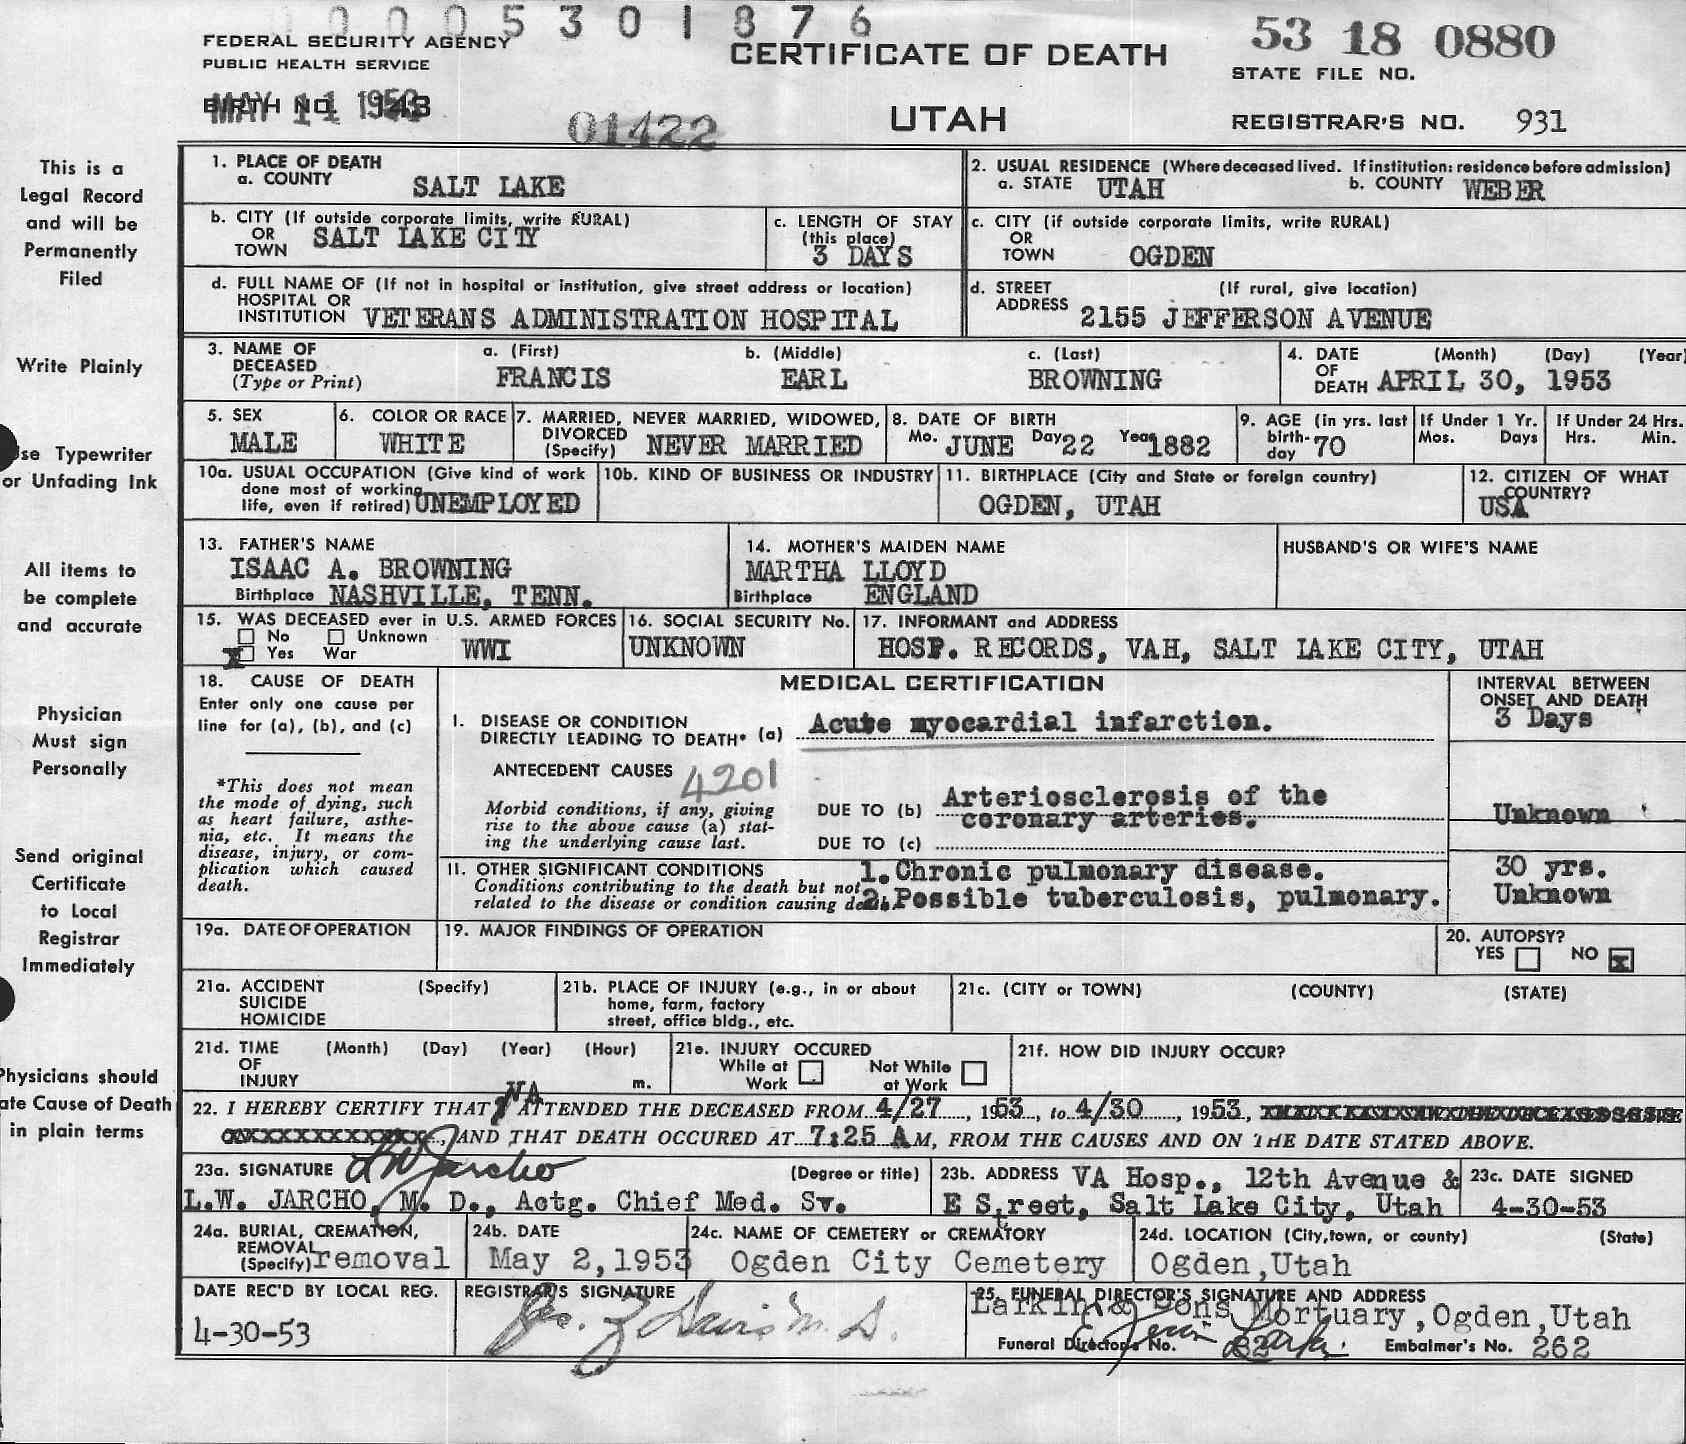 0005301876
FEDERAL SECURITY AGENCY
PUBLIC HEALTH SERVICE
CERTIFICATE OF DEATH
53 18 0880
STATE FILE NO.
BIRTH NO. 143
MAY 11 1953
01422
UTAH
REGISTRAR'S NO. 931
This is a
Legal Record
and will be
Permanently
Filed
Write Plainly
se Typewriter
or Unfading Ink
All items to
be complete
and accurate
Physician
Must sign
Personally
Send original
Certificate
to Local
Registrar
Immediately
Physicians should
ate Cause of Death
in plain terms
1. PLACE OF DEATH
a. COUNTY SALT LAKE
2. USUAL RESIDENCE (Where deceased lived. If institution: residence before admission)
a. STATE UTAH b. COUNTY WEBER
b. CITY (If outside corporate limits, write RURAL)
OR
TOWN SALT LAKE CITY
c. LENGTH OF STAY
(this place)
3 DAYS
c. CITY (if outside corporate limits, write RURAL)
OR
TOWN OGDEN
d. FULL NAME OF (If not in hospital or institution, give street address or location)
HOSPITAL OR
INSTITUTION VETERANS ADMINISTRATION HOSPITAL
d. STREET (If rural, give location)
ADDRESS 2155 JEFFERSON AVENUE
3. NAME OF a. (First) b. (Middle) c. (Last)
DECEASED
(Type or Print) FRANCIS EARL BROWNING
4. DATE (Month) (Day) (Year)
OF
DEATH APRIL 30, 1953
5. SEX
MALE
6. COLOR OR RACE
WHITE
7. MARRIED, NEVER MARRIED, WIDOWED,
DIVORCED
(Specify) NEVER MARRIED
8. DATE OF BIRTH
Mo. JUNE Day 22 Year 1882
9. AGE (in yrs. last
birth-
day 70
If Under 1 Yr.
Mos. Days
If Under 24 Hrs.
Hrs. Min.
10a. USUAL OCCUPATION (Give kind of work
done most of working
life, even if retired) UNEMPLOYED
10b. KIND OF BUSINESS OR INDUSTRY
11. BIRTHPLACE (City and State or foreign country)
OGDEN, UTAH
12. CITIZEN OF WHAT
COUNTRY?
USA
13. FATHER'S NAME
ISAAC A. BROWNING
Birthplace NASHVILLE, TENN.
14. MOTHER'S MAIDEN NAME
MARTHA LLOYD
Birthplace ENGLAND
HUSBAND'S OR WIFE'S NAME
15. WAS DECEASED ever in U.S. ARMED FORCES
No Unknown
X Yes War WWI
16. SOCIAL SECURITY No.
UNKNOWN
17. INFORMANT and ADDRESS
HOSP. RECORDS, VAH, SALT LAKE CITY, UTAH
18. CAUSE OF DEATH
Enter only one cause per
line for (a), (b), and (c)
*This does not mean
the mode of dying, such
as heart failure, asthe-
nia, etc. It means the
disease, injury, or com-
plication which caused
death.
MEDICAL CERTIFICATION
INTERVAL BETWEEN
ONSET AND DEATH
I. DISEASE OR CONDITION
DIRECTLY LEADING TO DEATH* (a) Acute myocardial infarction.
3 Days
ANTECEDENT CAUSES 4201
Morbid conditions, if any, giving
rise to the above cause (a) stat-
ing the underlying cause last.
DUE TO (b) Arteriosclerosis of the
coronary arteries.
Unknown
DUE TO (c)
II. OTHER SIGNIFICANT CONDITIONS
Conditions contributing to the death but not
related to the disease or condition causing death.
1. Chronic pulmonary disease.
30 yrs.
2. Possible tuberculosis, pulmonary.
Unknown
19a. DATE OF OPERATION
19. MAJOR FINDINGS OF OPERATION
20. AUTOPSY?
YES NO X
21a. ACCIDENT (Specify)
SUICIDE
HOMICIDE
21b. PLACE OF INJURY (e.g., in or about
home, farm, factory
street, office bldg., etc.
21c. (CITY or TOWN) (COUNTY) (STATE)
21d. TIME (Month) (Day) (Year) (Hour)
OF
INJURY m.
21e. INJURY OCCURED
While at Work
Not While at Work
21f. HOW DID INJURY OCCUR?
22. I HEREBY CERTIFY THAT VA ATTENDED THE DECEASED FROM 4/27, 1953, to 4/30, 1953,
AND THAT DEATH OCCURED AT 7:25 A M, FROM THE CAUSES AND ON THE DATE STATED ABOVE.
23a. SIGNATURE LW Jarcho (Degree or title)
L.W. JARCHO, M. D., Actg. Chief Med. Sv.
23b. ADDRESS VA Hosp., 12th Avenue &
E Street, Salt Lake City, Utah
23c. DATE SIGNED
4-30-53
24a. BURIAL, CREMATION,
REMOVAL
(Specify) removal
24b. DATE
May 2,1953
24c. NAME OF CEMETERY or CREMATORY
Ogden City Cemetery
24d. LOCATION (City,town, or county) (State)
Ogden,Utah
DATE REC'D BY LOCAL REG.
4-30-53
REGISTRAR'S SIGNATURE
Geo. Z Davis M. D.
25. FUNERAL DIRECTOR'S SIGNATURE AND ADDRESS
Larkin & Sons Mortuary,Ogden,Utah
Funeral Director's No.
Embalmer's No. 262